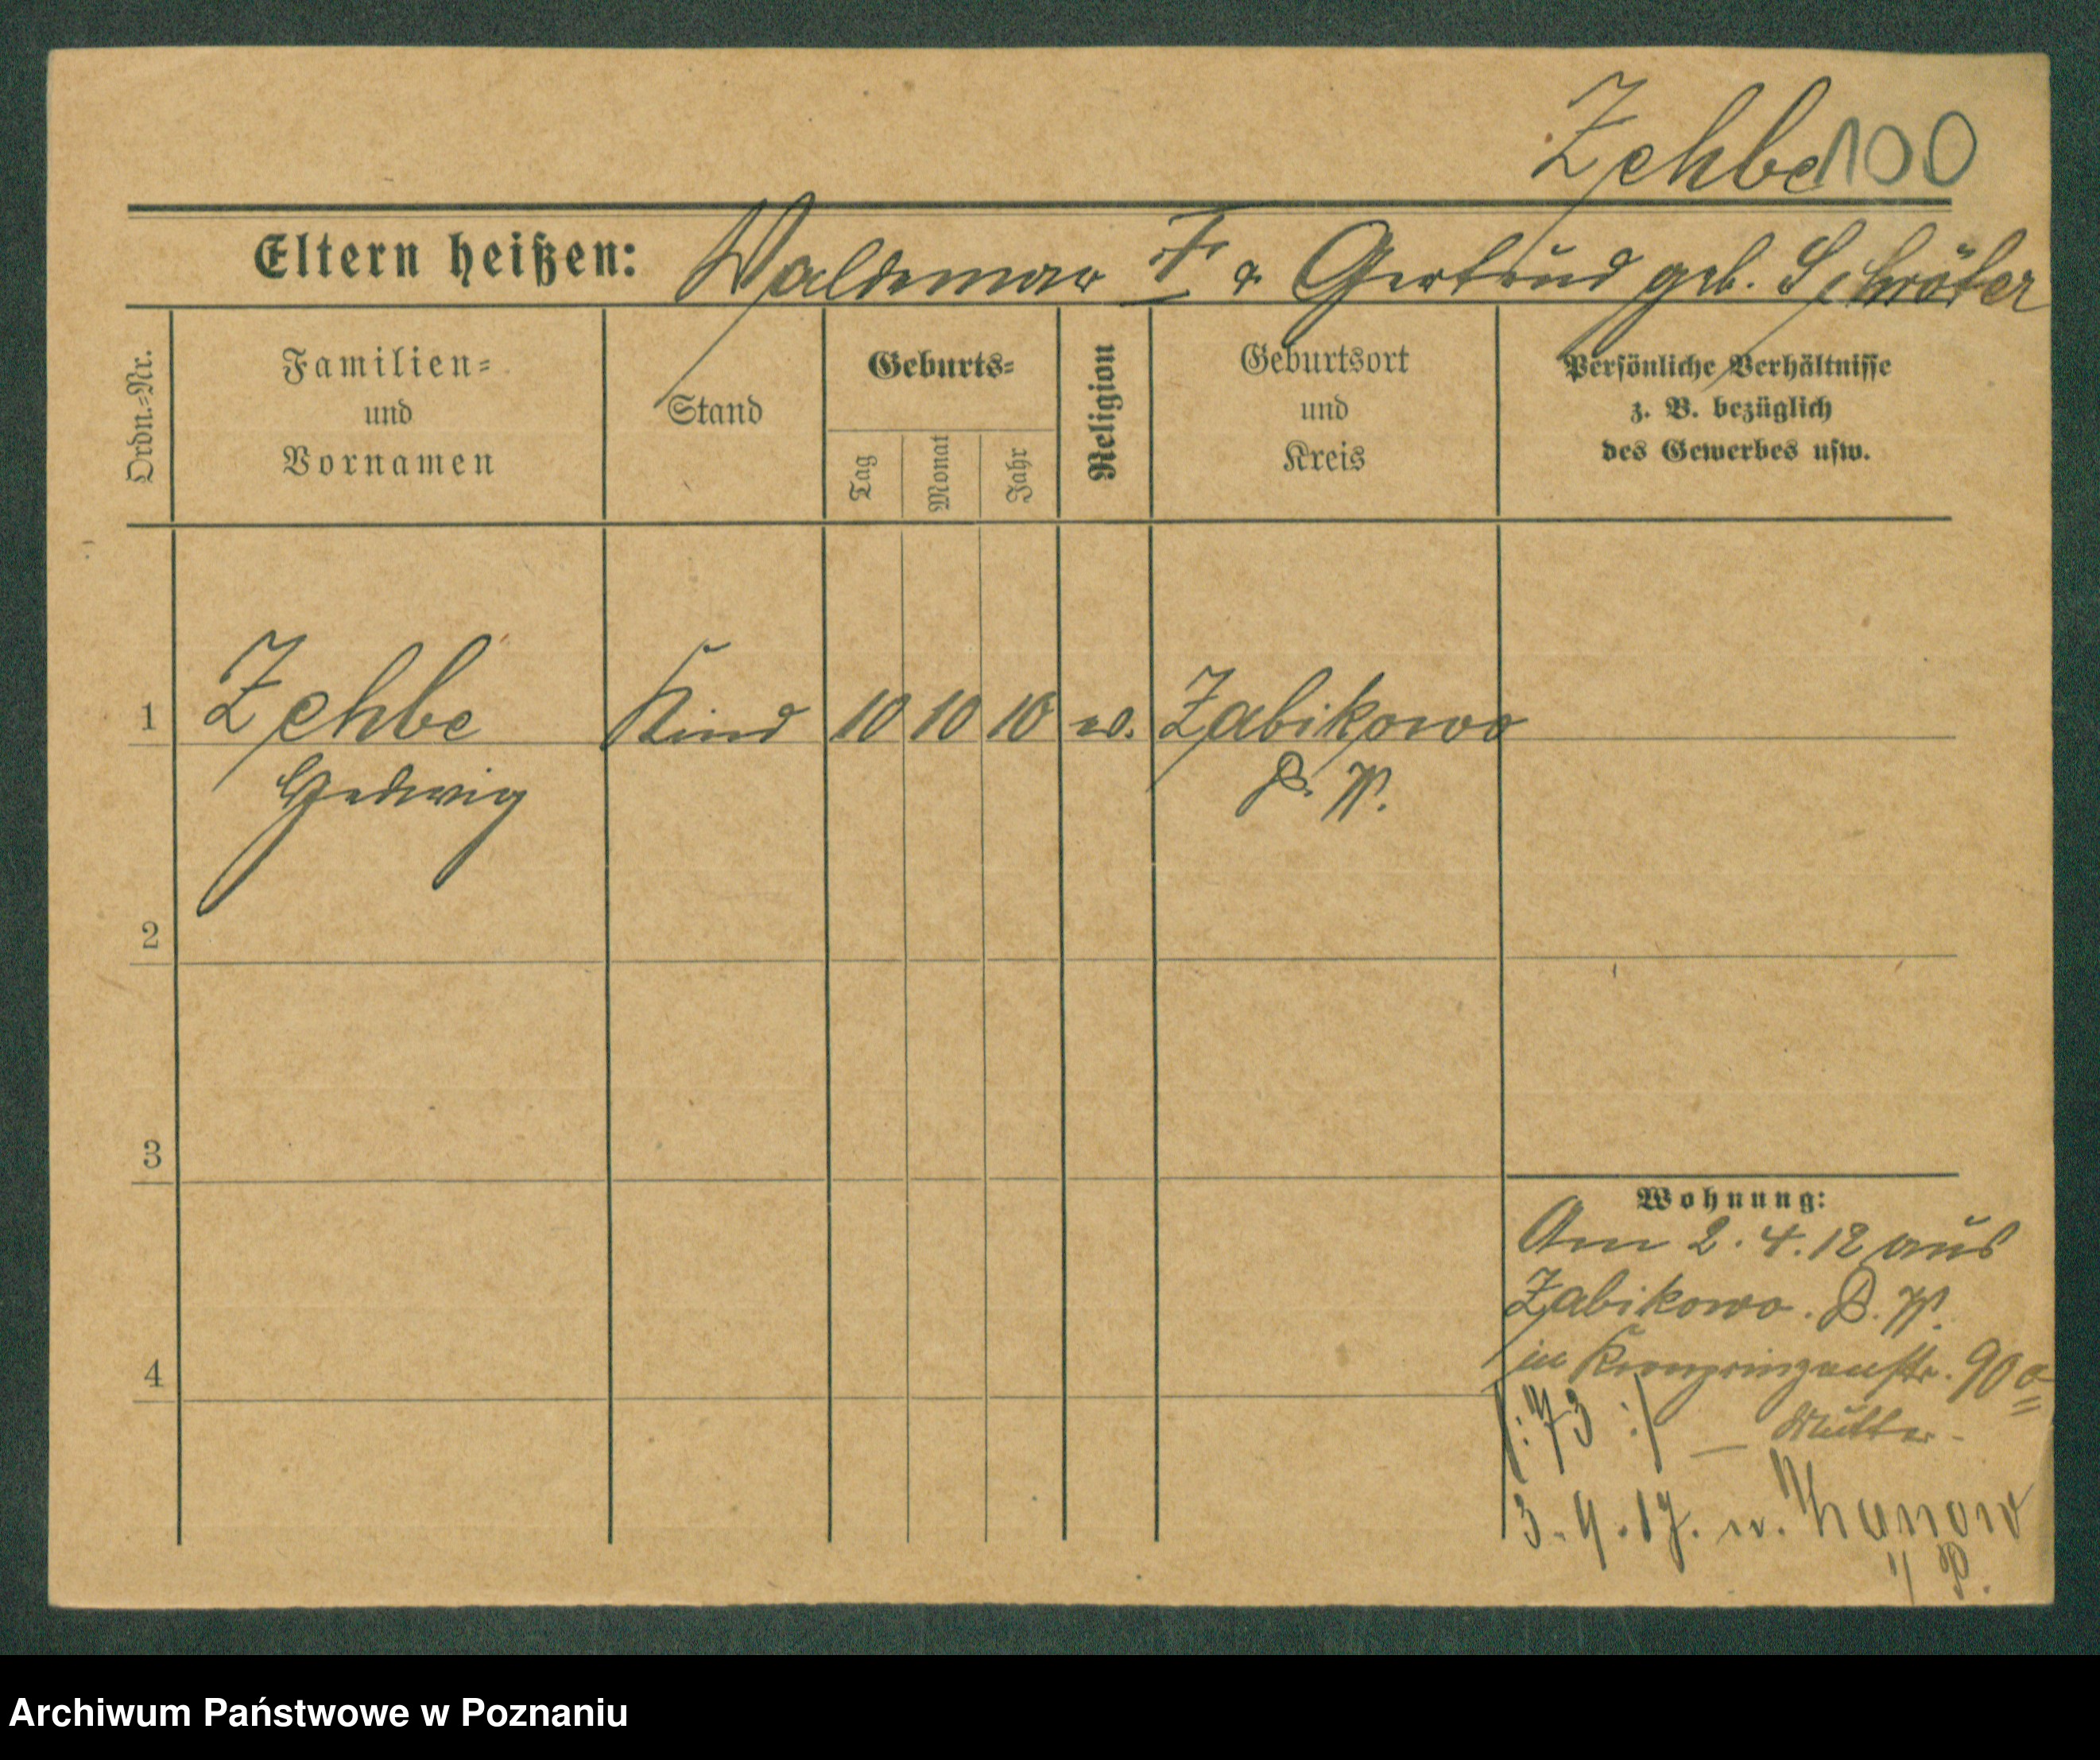 Zehbe 100
Eltern heißen: Waldemar F u. Gertrud geb. Schröter
Ordn.-Nr.
Familien-
und
Vornamen
Stand
Geburts-
Tag
Monat
Jahr
Religion
Geburtsort
und
Kreis
Persönliche Verhältnisse
z. B. bezüglich
des Gewerbes usw.
1 Zehbe Kind 10 10 10 ev. Zabikowo
Hedwig P. W.
2
3
4
Wohnung:
Am 2. 4. 12 aus
Zabikowo. P. W.
in Kronprinzenstr. 90a
/: 73 :/ – Mutter –
3. 9. 17. n.
i/ P.
Archiwum Państwowe w Poznaniu